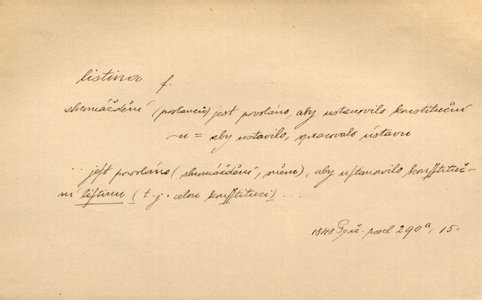 listina f.
shromáždění (poslanců) jest povoláno, aby ustanovilo konstituční
~u = aby ustavilo, zpracovalo ústavu
.. jeſt povoláno (shromáždění, sněm), aby uſtanovilo konſtituč-
ní liſtinu (t. j. celou konſtituci) ...
1848 290a, 15.